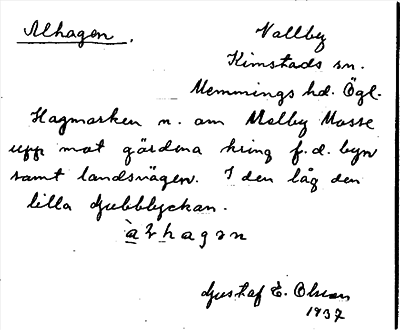 Alhagen.
Vallby
Kimstads sn.
Memmings hd. Ögl.
Hagmarken n. om Melby Mosse
upp mot gärdena kring f.d. byn
samt landsvägen. I den låg den
lilla djubblyckan.
àlhagən
Gustaf E. Olsson
1937